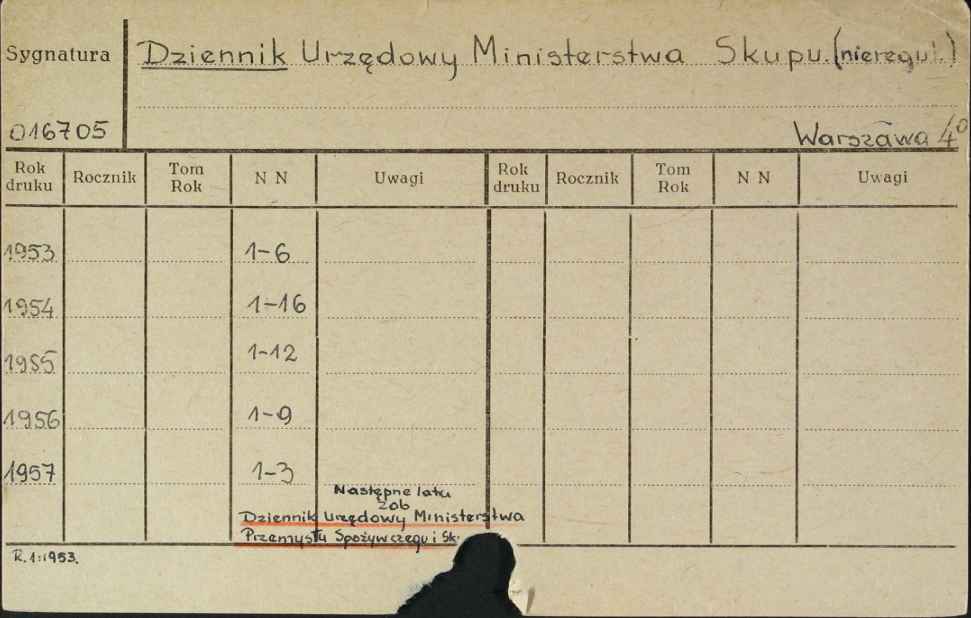 Sygnatura
Dziennik Urzędowy Ministerstwa Skupu. (nieregul.)
016705
Warszawa 4°
Rok druku Rocznik Tom Rok N N Uwagi Rok druku Rocznik Tom Rok N N Uwagi
1953 1-6
1954 1-16
1955 1-12
1956 1-9
1957 1-3
Następne lata
zob
Dziennik Urzędowy Ministerstwa
Przemysłu Spożywczego i Sk
R.1:1953.